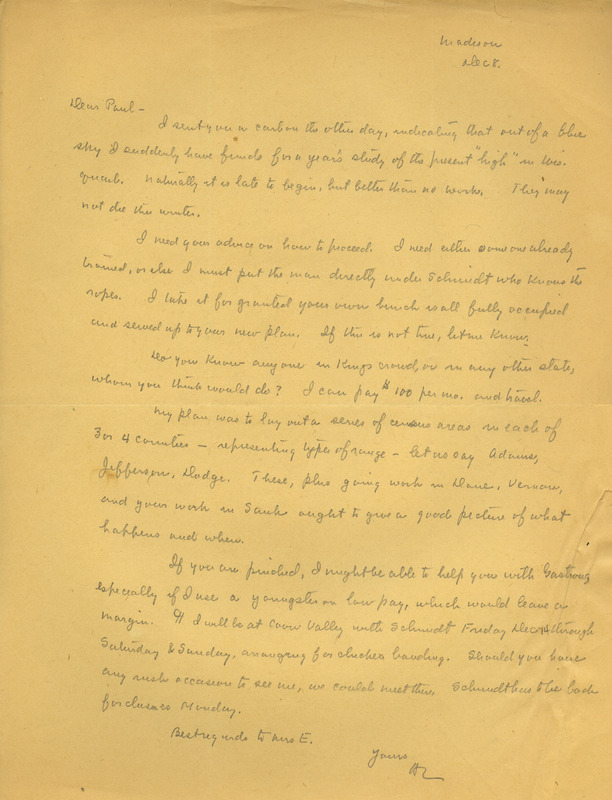 Madison
Dec 8.
Dear Paul –
I sent you a carbon the other day, indicating that out of a blue
sky I suddenly have funds for a year's study of the present "high" in Wis.
quail. Naturally it is late to begin, but better than no work. They may
not die this winter.
I need your advice on how to proceed. I need either someone already
trained, or else I must put the man directly under Schmidt who knows the
ropes. I take it for granted your own bunch is all fully occupied
and served up to your new plan. If this is not true, let me know.
Do you know anyone in Kings crowd, or in any other state,
whom you think would do? I can pay $100 per mo. and travel.
My plan was to lay out a series of census areas in each of
3 or 4 counties – representing types of range – let us say Adams,
Jefferson, Dodge. These, plus going work in Dane, Vernon,
and your work in Sauk ought to give a good picture of what
happens and when.
If you are pinched, I might be able to help you with Gastrow,
especially if I use a youngster on low pay, which would leave a
margin. ¶ I will be at Coon Valley with Schmidt Friday Dec through
Saturday & Sunday, arranging for chicken banding. Should you have
any rush occasion to see me, we could meet there. Schmidt has to be back
for classes Monday.
Best regards to Mrs E.
Yours
AL